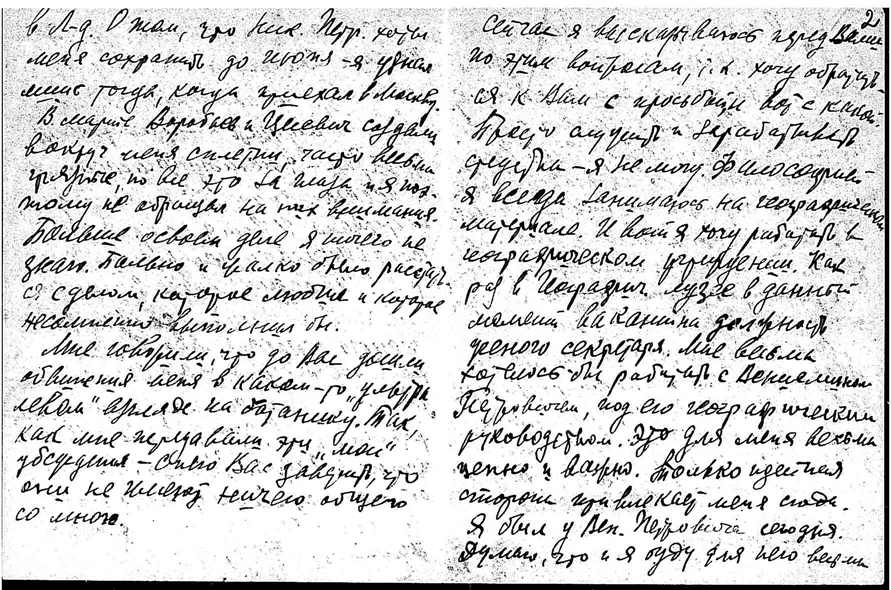 в Л-д. О том, что Ник. Петр. хотел
меня сохранить до июня - я узнал
лишь тогда, когда приехал в Москву.
В марте Воробьев и создали
вокруг меня сплетни, часто весьма
грязные, но все это за глаза и я поэ-
тому не обращал на них внимания.
Больше о своем деле я ничего не
знаю. Больно и жалко было расстать-
ся с делом, которое любил и которое
несомненно выполнил бы.
Мне говорили, что до Вас дошли
обвинения меня в каком-то "ультра
левом" взгляде на ботанику. Так,
как мне передавали эти "мои"
убеждения - смею Вас заверить, что
они не имеют ничего общего
со мною.
2
Сейчас я высказываюсь перед Вами
по этим вопросам, т.к. хочу обратить-
ся к Вам с просьбой вот с какой.
Просто служить и зарабатывать
средства - я не могу. Философией
я всегда занимаюсь на географическом
материале. И вот я хочу работать в
географическом учреждении. Как
раз в Географич. музее в данный
момент вакантна должность
ученого секретаря. Мне весьма
хотелось бы работать с Вениамином
Петровичем, под его географическим
руководством. Это для меня весьма
ценно и важно. Только идейная
сторона привлекает меня сюда.
Я был у Вен. Петровича сегодня.
Думаю, что и я буду для него весьма